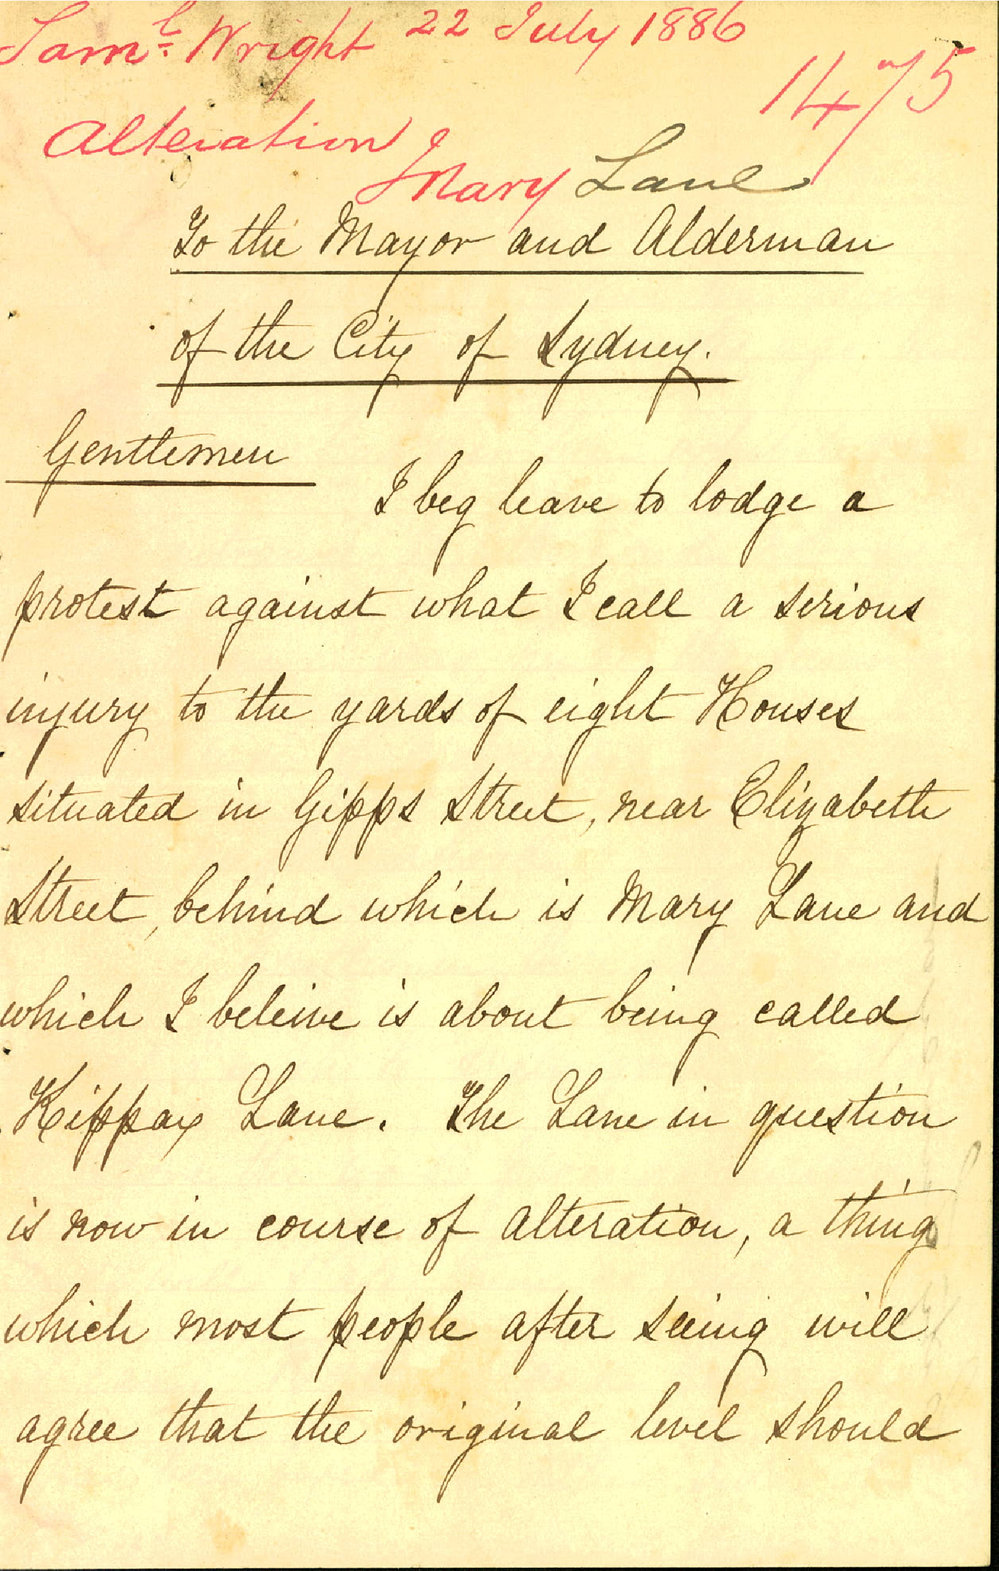 Saml. Wright 22 July 1886
1475
Alteration
Mary Lane
To the Mayor and Alderman
of the City of Sydney.
Gentlemen
I beg leave to lodge a
protest against what I call a serious
injury to the yards of eight Houses
situated in Gipps Street, near Elizabeth
Street, behind which is Mary Lane and
which I beleive is about being called
Kippax Lane. The Lane in question
is now in course of alteration, a thing
which most people after seeing will
agree that the original level should